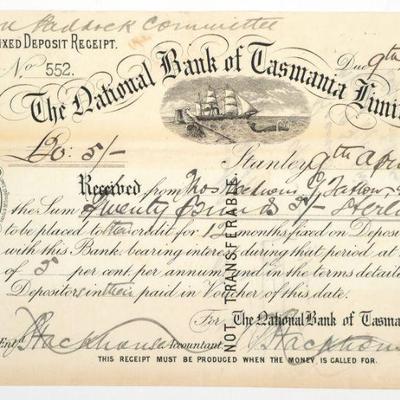 Paddock Committee
FIXED DEPOSIT RECEIPT.
No 552. Due 9th
The National Bank of Tasmania Limi
£20: 5/- Stanley 9th April
Received from
the Sum Twenty Pounds 5/- Sterli
to be placed to their credit for 12 months fixed on Deposit
with this Bank, bearing interest during that period at
of 5 per cent. per annum, and on the terms detailed
Depositors in their paid in Voucher of this date.
NOT TRANSFERABLE
For The National Bank of Tasma
Entd Stackhouse Accountant. Stackhouse
THIS RECEIPT MUST BE PRODUCED WHEN THE MONEY IS CALLED FOR.